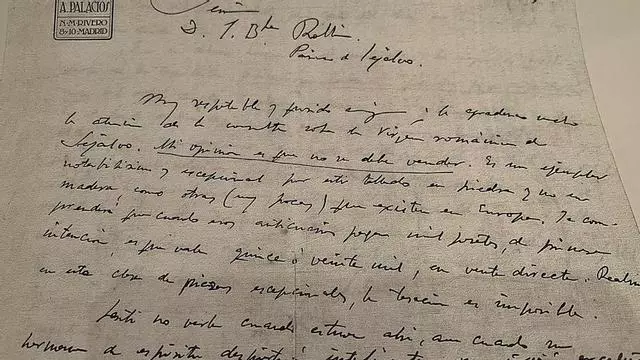 A. PALACIOS
N. M. RIVERO
8 Y 10 - MADRID
Señor
D. J. Bta
Párroco de Tejalvo.
Muy respetable y querido amigo: le agradezco mucho
la atención de la consulta sobre la Virgen románica de
Tejalvo. Mi opinión es que no se debe vender. Es un ejemplar
notabilísimo y excepcional por estar tallado en piedra y no en
madera, como otras (muy pocas) que existen en Europa. Ya com-
prenderá que cuando esos anticuarios pagan mil pesetas, de primera
intención, es que vale quince o veinte mil, en venta directa. Realm
en esta clase de piezas excepcionales, la tasación es imposible.
Sentí no verle cuando estuve ahí, aun cuando su
hermano de espíritu